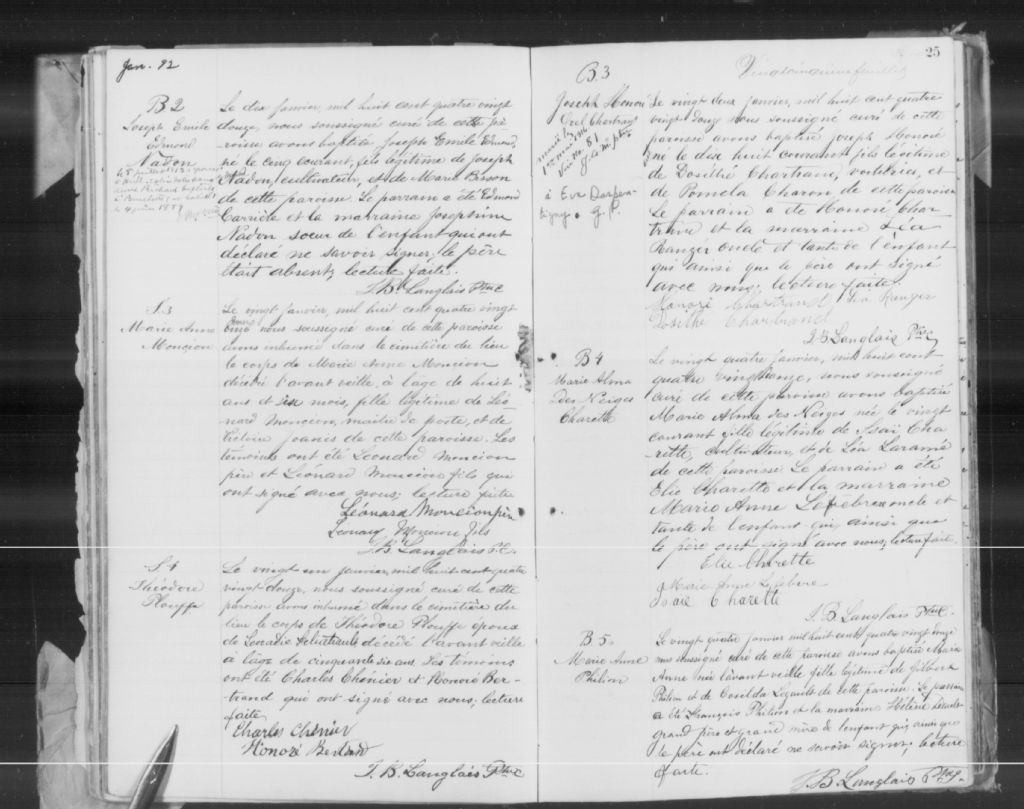 Jan. 92
B 2
Joseph Emile
Edmond
Nadon
Le dix janvier, mil huit cent quatre vingt
douze, nous soussigné curé de cette pa-
roisse avons baptisé Joseph Emile Edmond,
né le cinq courant, fils légitime de Joseph
Nadon, cultivateur, et de Marie Brison
de cette paroisse. Le parrain a été Edmond
Carrière et la marraine Josephine
Nadon soeur de l'enfant qui ont
déclaré ne savoir signer, le père
était absent, lecture faite.
J. B. Langlais Ptre C
S. 3
Marie Anne
Moncion
Le vingt janvier, mil huit cent quatre vingt
nous soussigné curé de cette paroisse
avons inhumé dans le cimetière du lieu
le corps de Marie Anne Moncion
décédée l'avant veille, à l'age de huit
ans et six mois, fille légitime de Léo-
nard Moncion, maître de poste, et de
de cette paroisse. Les
témoins ont été Léonard Moncion
père et Léonard Moncion fils qui
ont signé avec nous, lecture faite
Léonard Moncion père
Leonard Moncion fils
J. B. Langlais P.C.
S 4
Théodore
Plouffe
Le vingt un janvier, mil huit cent quatre
vingt douze, nous soussigné curé de cette
paroisse avons inhumé dans le cimetière du
lieu le corps de Théodore Plouffe époux
de décédé l'avant veille
à l'âge de cinquante six ans. Les témoins
ont été Charles Chénier et Honoré Ber-
trand qui ont signé avec nous, lecture
faite
Charles Chénier
Honoré Bertrand
J. B. Langlais Ptre C
25
Vingt cinquieme feuillet
B 3
Joseph Honoré
Chartrand
1er mai 1916
à Eva
Le vingt deux janvier, mil huit cent quatre
vingt douze nous soussigné curé de cette
paroisse avons baptisé Joseph Honoré
né le dix huit courant, fils légitime
de Dosithé Chartrand, voiturier, et
de Pomela Charon de cette paroisse
Le parrain a été Honoré Char-
trand et la marraine Léa
Ranger oncle et tante de l'enfant
qui ainsi que le père ont signé
avec nous, lecture faite.
Honoré Chartrand Léa Ranger
Dosithé Chartrand
J. B. Langlais Ptre C
B 4
Marie Alma
des Neiges
Charette
Le vingt quatre janvier, mil huit cent
quatre vingt douze, nous soussigné
curé de cette paroisse avons baptisé
Marie Alma des Neiges née le vingt
courant fille légitime de Isaï Cha-
rette, cultivateur, et de Léa Laramé
de cette paroisse Le parrain a été
Elie Charette et la marraine
Marie Anne Lefebvre oncle et
tante de l'enfant qui, ainsi que
le père ont signé avec nous, lecture faite.
Elie Charette
Marie Anne Lefebvre
Isaïe Charette
J. B. Langlais Ptre C.
B 5
Marie Anne
Philion
Le vingt quatre janvier mil huit cent quatre vingt douze
nous soussigné curé de cette paroisse avons baptisé Marie
Anne née l'avant veille fille légitime de Gilbert
Philion et de Cosilda Legault de cette paroisse. Le parrain
a été François Philion et la marraine Hélène Legault
grand père et grand mère de l'enfant qui, ainsi que
le père ont déclaré ne savoir signer, lecture
faite.
J. B. Langlais Ptre C.